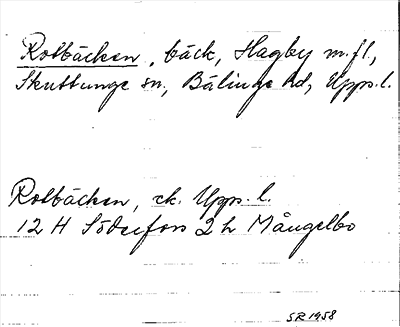 Rotbäcken, bäck, Hagby m.fl.,
Skuttunge sn, Bälinge hd, Upps.l.
Rotbäcken, ek. Upps.l.
12 H Söderfors 2 h Mångelbo
SR 1958